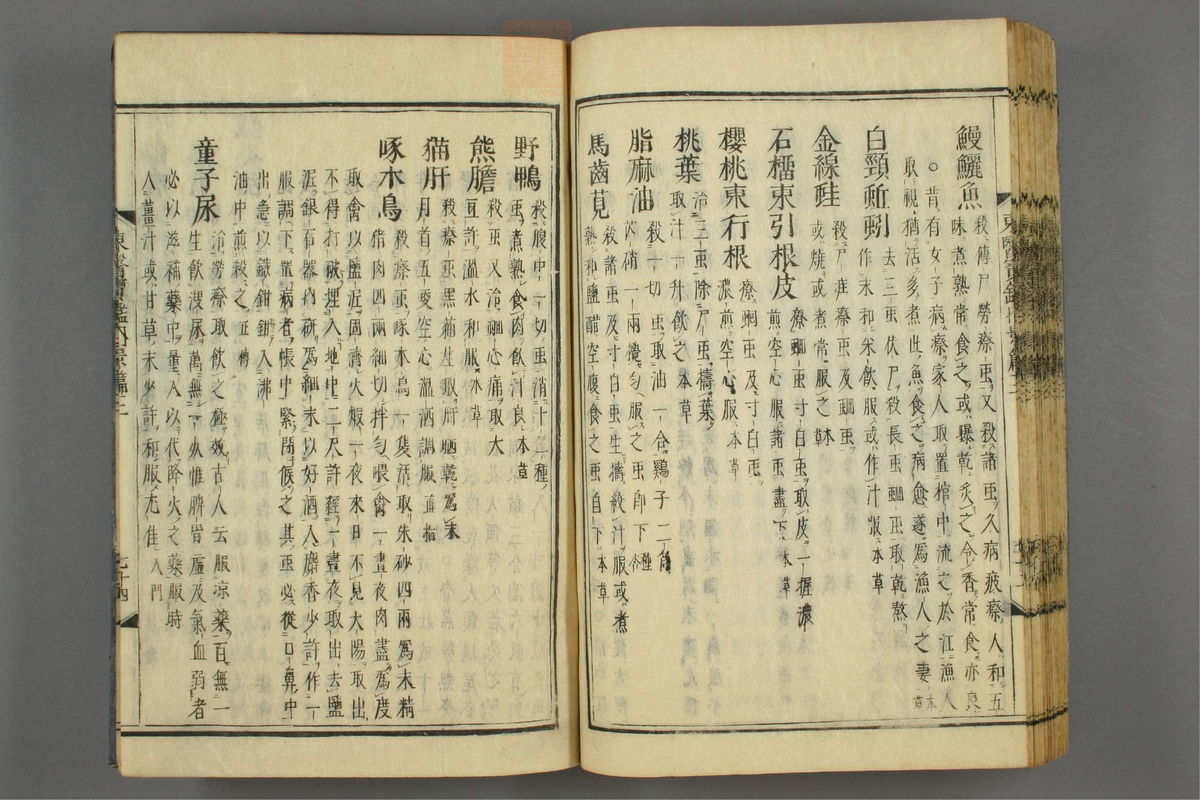 鰻鱺魚 殺傳尸勞瘵虫又殺諸虫久病疲瘵人和五
味煮熟常食之或曝乾炙之令香常食亦良
○昔有女子病瘵家人取置棺中流之於江漁人
取視猶活多煮此魚食之病愈遂為漁人之妻 本草
白頸蚯蚓 去三虫伏尸殺長虫蛔虫取乾熬
作末和米飲服或作汁服 本草
金線蛙 殺尸疰瘵虫及蛔虫
或燒或煮常服之 本草
石榴東引根皮 療蛔虫寸白虫取皮一握濃
煎空心服諸虫盡下 本草
櫻桃東行根 療蛔虫及寸白虫
濃煎空心服 本草
桃葉 治三虫除尸虫擣葉
取汁一升飲之 本草
脂麻油 殺一切虫取油一合鷄子二箇
芒硝一兩攪勻服之虫即下 本草
馬齒莧 殺諸虫及寸白虫生擣絞汁服或煮
熟和鹽醋空腹食之虫自下 本草
野鴨 殺腹中一切虫消十二種
虫煮熟食肉飲汁良 本草
熊膽 殺虫又治蛔心痛取大
豆許溫水和服 本草
猫肝 殺瘵虫黑猫生取肝晒乾為末
每月首五更空心溫酒調服 直指
啄木鳥 殺瘵虫啄木鳥一隻活取朱砂四兩為末精
猪肉四兩細切拌勻喂禽一晝夜肉盡為度
取禽以鹽泥固濟火煆一夜來日不見大陽取出
不得打破埋入地中二尺許經一晝夜取出去鹽
泥銀石器內研為細末以好酒入麝香少許作一
服調下置病者帳中緊閉候之其虫必從口鼻中
出急以鐵鉗鉗入沸
油中煎殺之 正傳
童子尿 治勞瘵取飲之極效古人云服涼藥百無一
生飲溲尿萬無一死久惟脾胃虛及氣血弱者
必以滋補藥中量入以代降火之藥服時
入薑汁或甘草末少許和服尤佳 入門
東醫寶鑑內景篇三
七十四